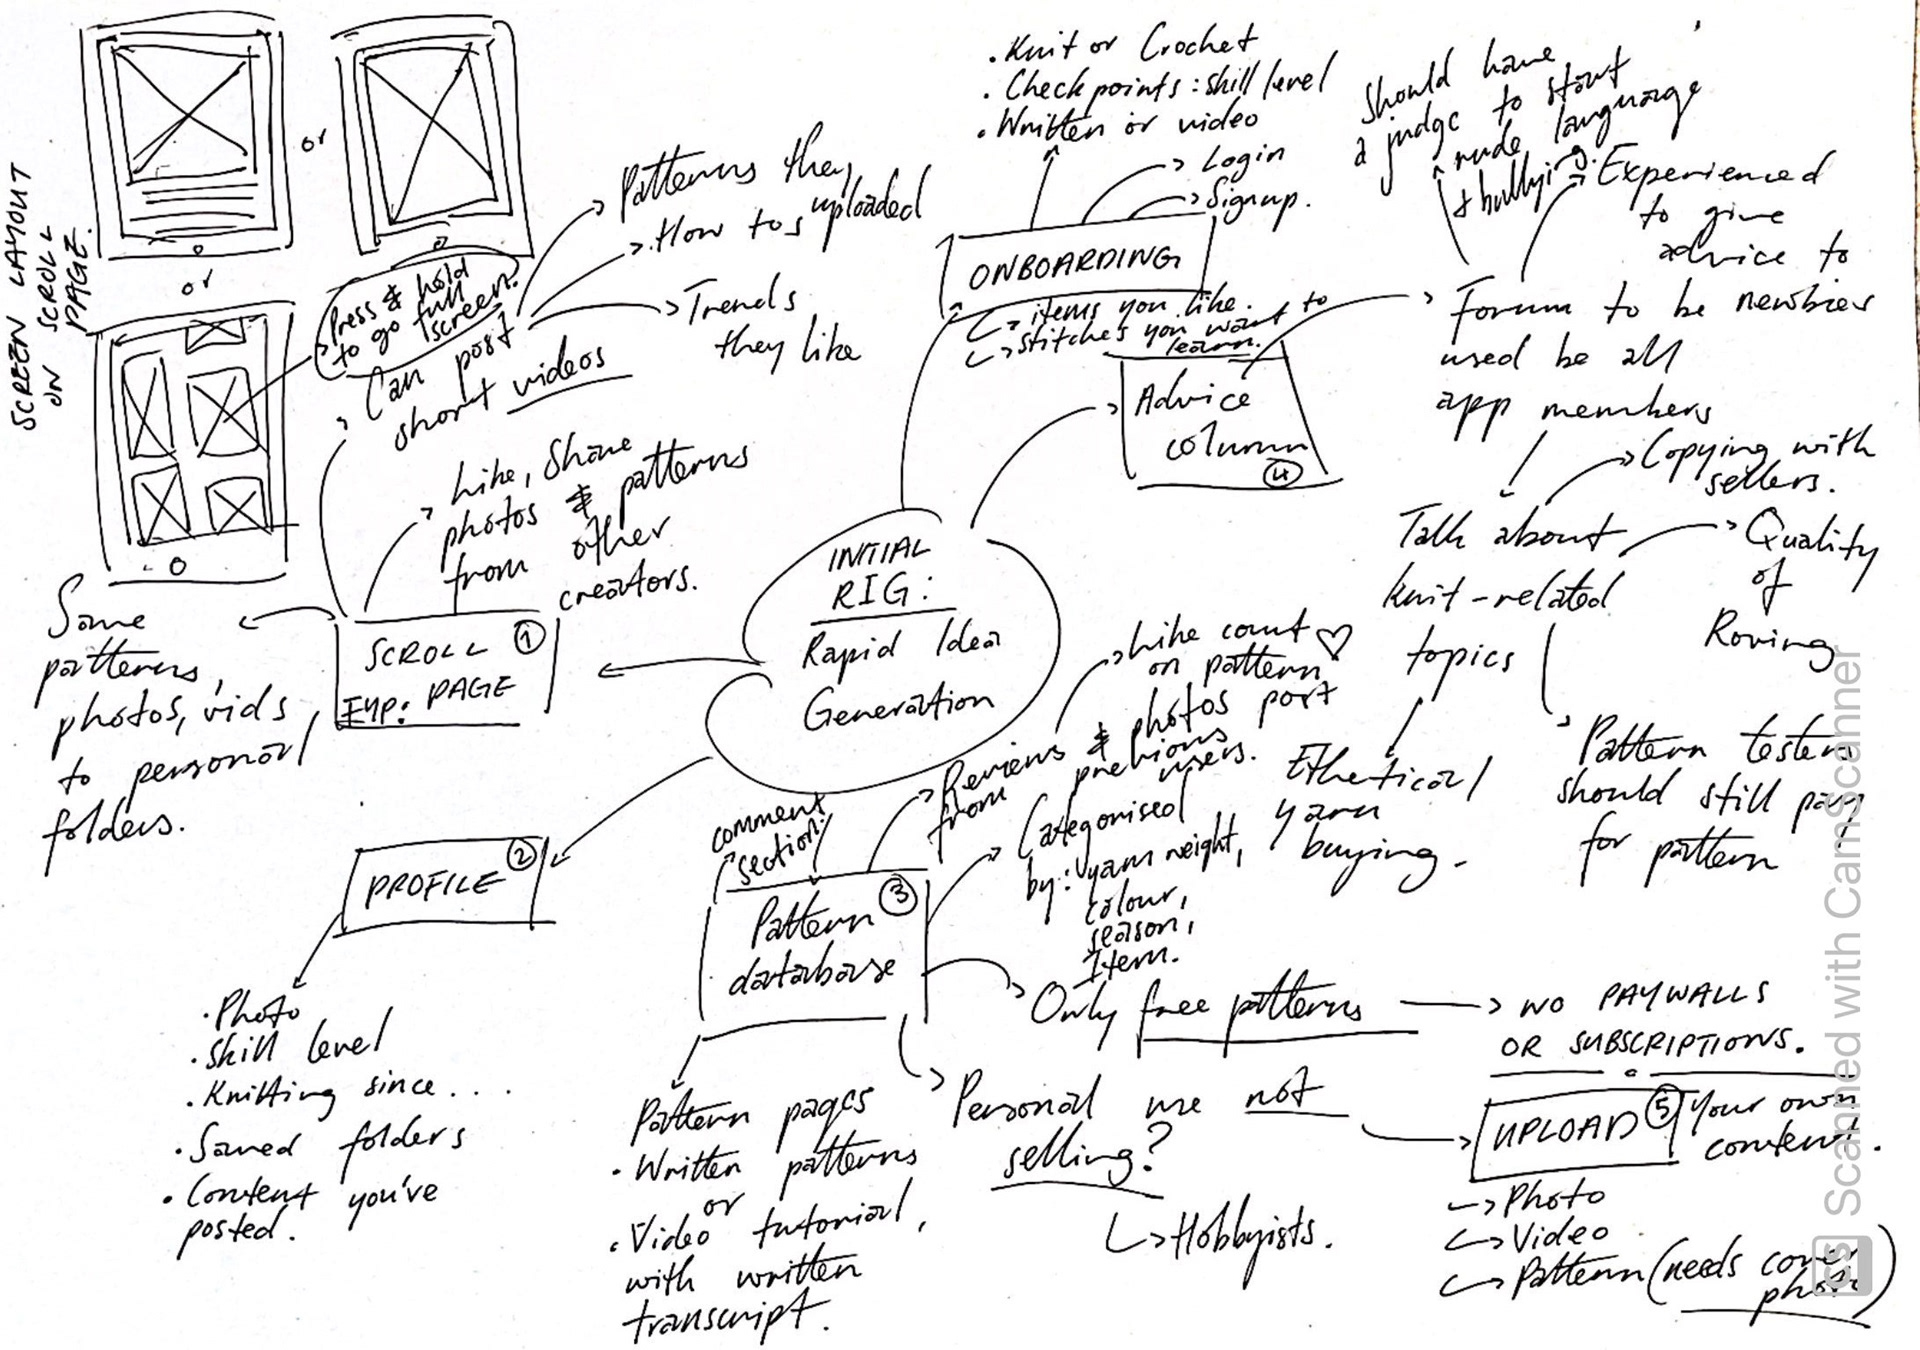 SCREEN LAYOUT
ON SCROLL
PAGE.
or
or
Press & hold
to go full
screen.
Can post
short videos
Patterns they
uploaded
How tos
Trends
they like
Like, Share
photos & patterns
from other
creators.
SCROLL ①
PAGE
Some
patterns,
photos, vids
to personal
folders.
• Knit or Crochet
• Checkpoints: skill level
• Written or video
Login
Signup.
ONBOARDING
items you like.
stitches you want to
learn.
Advice
column
④
Should have
a judge to start
rude language
& bullying.
Experienced
to give
advice to
newbies
Forum to be
used be all
app members
Copying with
sellers.
Talk about
knit-related
topics
Quality
of
Roving
Pattern testers
should still pay
for pattern
Ethetical
yarn
buying.
INITIAL
RIG:
Rapid Idea
Generation
PROFILE ②
• Photo
• Skill level
• Knitting since....
• Saved folders
• Content you've
posted.
comment
section!
Pattern ③
database
Like count ♡
on pattern
post
Reviews & photos
from previous
users.
Categorised
by: yarn weight,
colour,
season,
Item.
Only free patterns
NO PAYWALLS
OR SUBSCRIPTIONS.
Personal use not
selling?
Hobbyists.
Pattern pages
• Written patterns
or
• Video tutorial,
with written
transcript.
UPLOAD ⑤
your own
content.
Photo
Video
Pattern (needs cover
photo)
CS Scanned with CamScanner